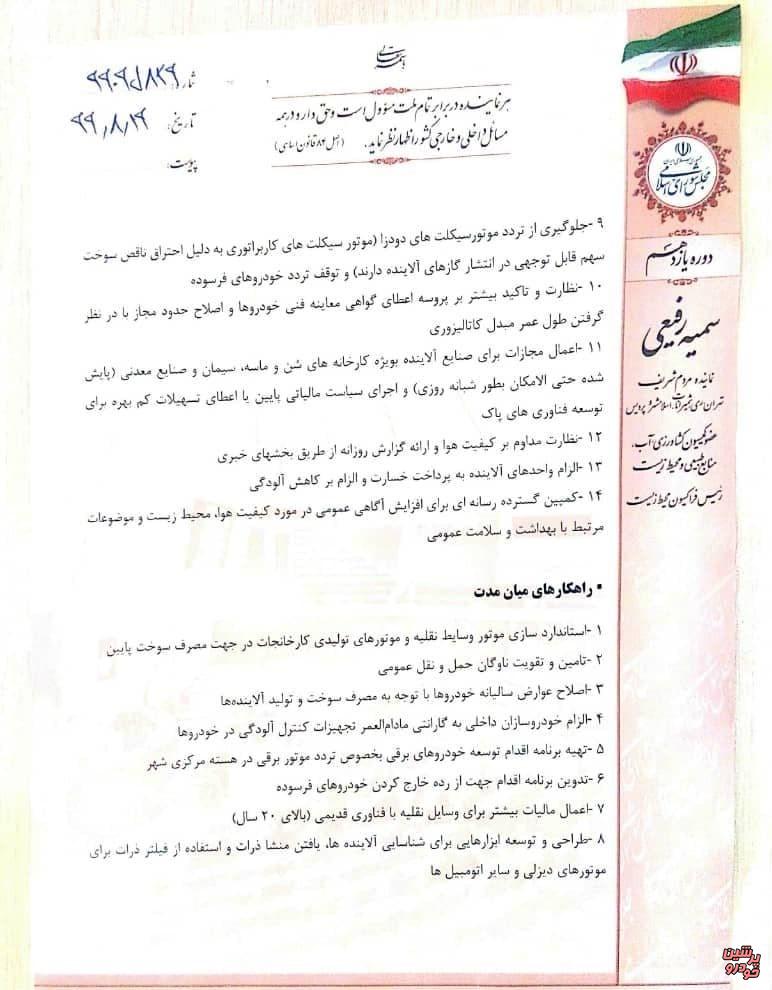 باسمه تعالی
هر نماینده در برابر تمام ملت مسؤول است و حق دارد در همه
مسائل داخلی و خارجی کشور اظهار نظر نماید. (اصل ۸۴ قانون اساسی)
شماره:
تاریخ: ۹۹،۸،۱۹
پیوست:
جمهوری اسلامی ایران
مجلس شورای اسلامی
دوره یازدهم
سمیه رفیعی
نماینده مردم شریف
تهران، ری، شمیرانات، اسلامشهر و پردیس
عضو کمیسیون کشاورزی، آب،
منابع طبیعی و محیط زیست
رئیس فراکسیون محیط زیست
۹ -جلوگیری از تردد موتورسیکلت های دودزا (موتور سیکلت های کاربراتوری به دلیل احتراق ناقص سوخت
سهم قابل توجهی در انتشار گازهای آلاینده دارند) و توقف تردد خودروهای فرسوده
۱۰ -نظارت و تاکید بیشتر بر پروسه اعطای گواهی معاینه فنی خودروها و اصلاح حدود مجاز با در نظر
گرفتن طول عمر مبدل کاتالیزوری
۱۱ -اعمال مجازات برای صنایع آلاینده بویژه کارخانه های شن و ماسه، سیمان و صنایع معدنی (پایش
شده حتی الامکان بطور شبانه روزی) و اجرای سیاست مالیاتی پایین یا اعطای تسهیلات کم بهره برای
توسعه فناوری های پاک
۱۲ -نظارت مداوم بر کیفیت هوا و ارائه گزارش روزانه از طریق بخشهای خبری
۱۳ -الزام واحدهای آلاینده به پرداخت خسارت و الزام بر کاهش آلودگی
۱۴ -کمپین گسترده رسانه ای برای افزایش آگاهی عمومی در مورد کیفیت هوا، محیط زیست و موضوعات
مرتبط با بهداشت و سلامت عمومی
▪ راهکارهای میان مدت
۱ -استاندارد سازی موتور وسایط نقلیه و موتورهای تولیدی کارخانجات در جهت مصرف سوخت پایین
۲ -تامین و تقویت ناوگان حمل و نقل عمومی
۳ -اصلاح عوارض سالیانه خودروها با توجه به مصرف سوخت و تولید آلاینده‌ها
۴ -الزام خودروسازان داخلی به گارانتی مادام‌العمر تجهیزات کنترل آلودگی در خودروها
۵ -تهیه برنامه اقدام توسعه خودروهای برقی بخصوص تردد موتور برقی در هسته مرکزی شهر
۶ -تدوین برنامه اقدام جهت از رده خارج کردن خودروهای فرسوده
۷ -اعمال مالیات بیشتر برای وسایل نقلیه با فناوری قدیمی (بالای ۲۰ سال)
۸ -طراحی و توسعه ابزارهایی برای شناسایی آلاینده ها، یافتن منشا ذرات و استفاده از فیلتر ذرات برای
موتورهای دیزلی و سایر اتومبیل ها
پرشین خودرو